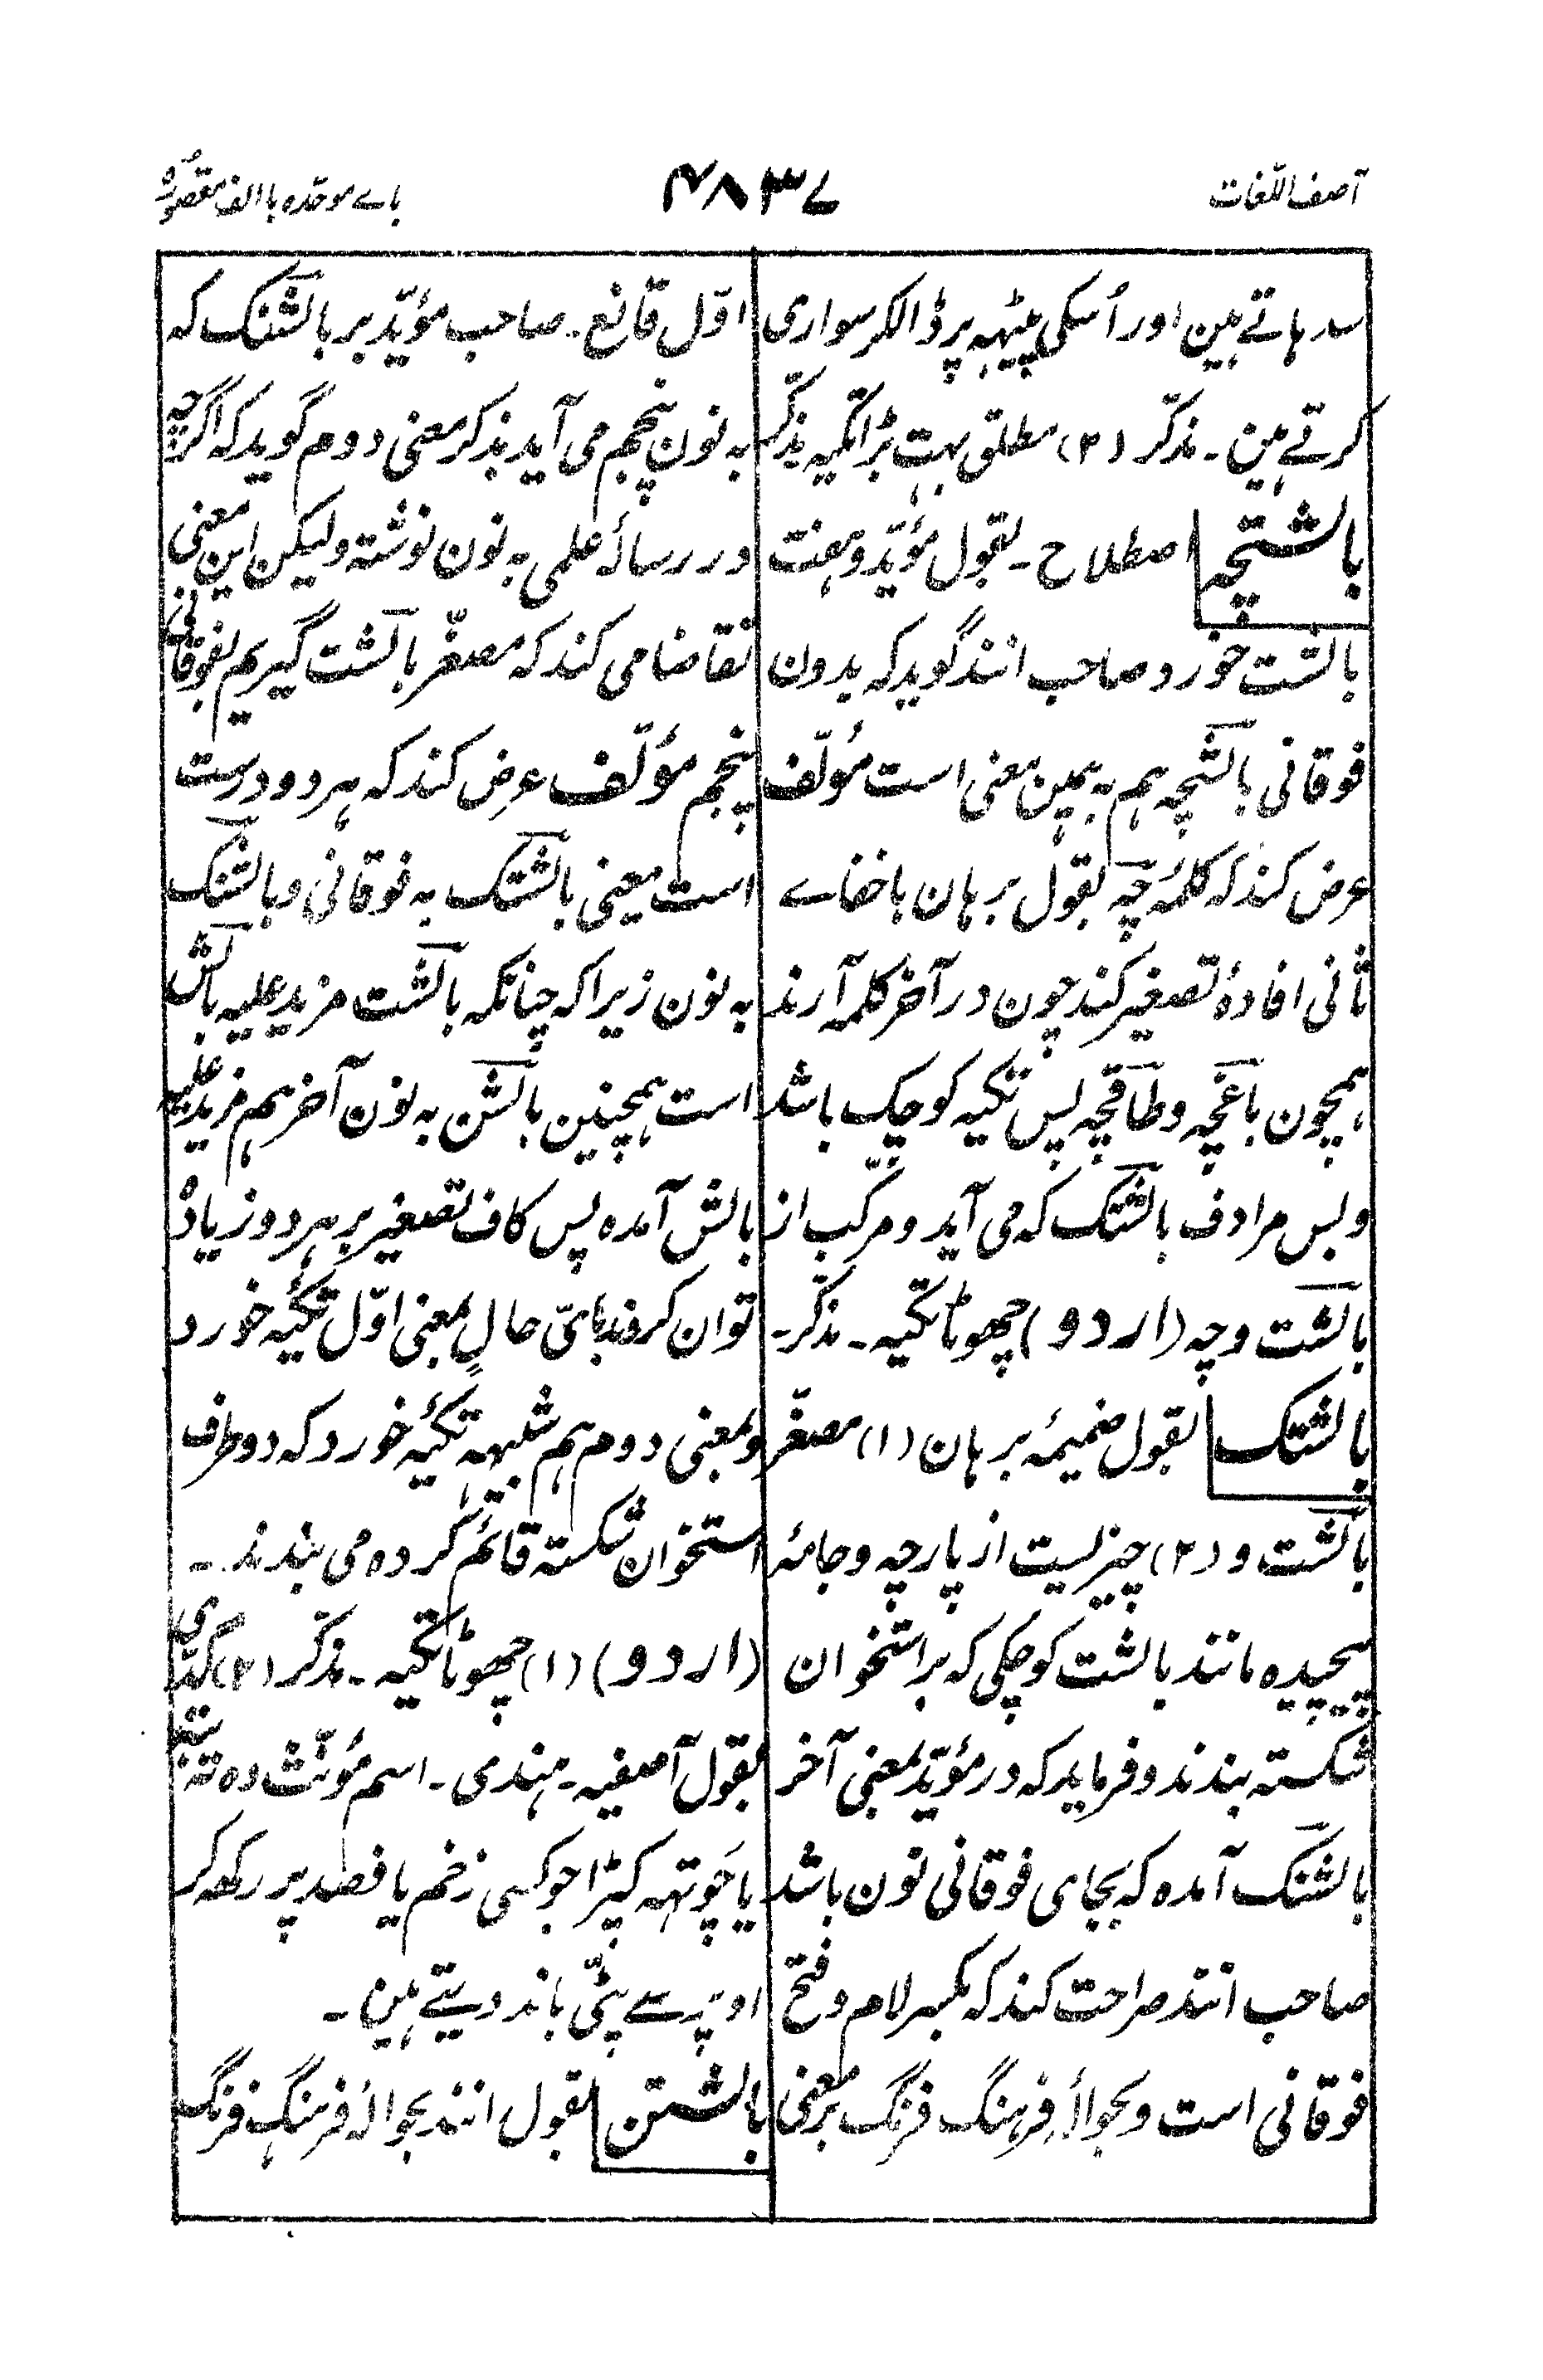 آصف اللّغات
۴۸۳۷
بائے موحّدہ با الف مقصورہ
سدہاتے ہین اور اُسکی پیٹہہ پر ڈالکر سواری
کرتے ہین ۔ مذکّر (۲) مطلق بہت بڑا تکیہ مذکّر
بالشتچہ اصطلاح ۔ بقول مؤیّد و ہفت
بالشت خورد صاحب انند گوید کہ بدون
فوقانی بالشچہ ہم بہ ہمین معنی است مؤلّف
عرض کند کہ کلمۂ چہ بقول برہان باخفاے
ثانی افادۂ تصغیر کند چون در آخر کلمہ آرند
ہمچون باغچہ و طاقچہ پس تکیہ کوچک باشد
و بس مرادف بالشتک کہ می آید و مرکّب از
بالشت و چہ (اردو) چھوٹا تکیہ ۔ مذکّر ۔
بالشتک بقول ضمیمۂ برہان (۱) مصغّر
بالشت و (۲) چیزیست از پارچہ و جامۂ
پیچیدہ مانند بالشت کوچکی کہ بر استخوان
شکستہ بندند و فرماید کہ در مؤیّد بمعنی آخر
بالشنک آمدہ کہ بجای فوقانی نون باشد
صاحب انند صراحت کند کہ بکسر لام و فتح
فوقانی است و بحوالۂ فرہنگ فرنگ بر معنی
اوّل قانع ۔ صاحب مؤیّد بر بالشنک کہ
بہ نون پنجم می آید بذکر معنی دوم گوید کہ اگرچہ
در رسالۂ علمی بہ نون نوشتہ ولیکن این معنی
تقاضا می کند کہ مصغّر بالشت گیریم بفوقانی
پنجم مؤلّف عرض کند کہ ہر دو درست
است یعنی بالشتک بہ فوقانی و بالشنک
بہ نون زیراکہ چنانکہ بالشت مزید علیہ بالش
است ہمچنین بالشن بہ نون آخر ہم مزید علیہ
بالش آمدہ پس کاف تصغیر بر ہر دو زیادہ
توان کرد باَیّ حالٍ بمعنی اوّل تکیۂ خورد
و بمعنی دوم ہم شبیہہ تکیۂ خورد کہ دو طرف
استخوان شکستہ قائم کردہ می بندند ۔
(اردو) (۱) چھوٹا تکیہ ۔ مذکّر (۲) گدّی
بقول آصفیہ ۔ ہندی ۔ اسم مؤنّث وہ تہ بتہ
یا چَوتہہ کپڑا جو کسی زخم یا فصد پر رکھ کر
اوپر سے پٹّی باندہ دیتے ہین ۔
بالشتن بقول انند بحوالۂ فرہنگ فرنگ